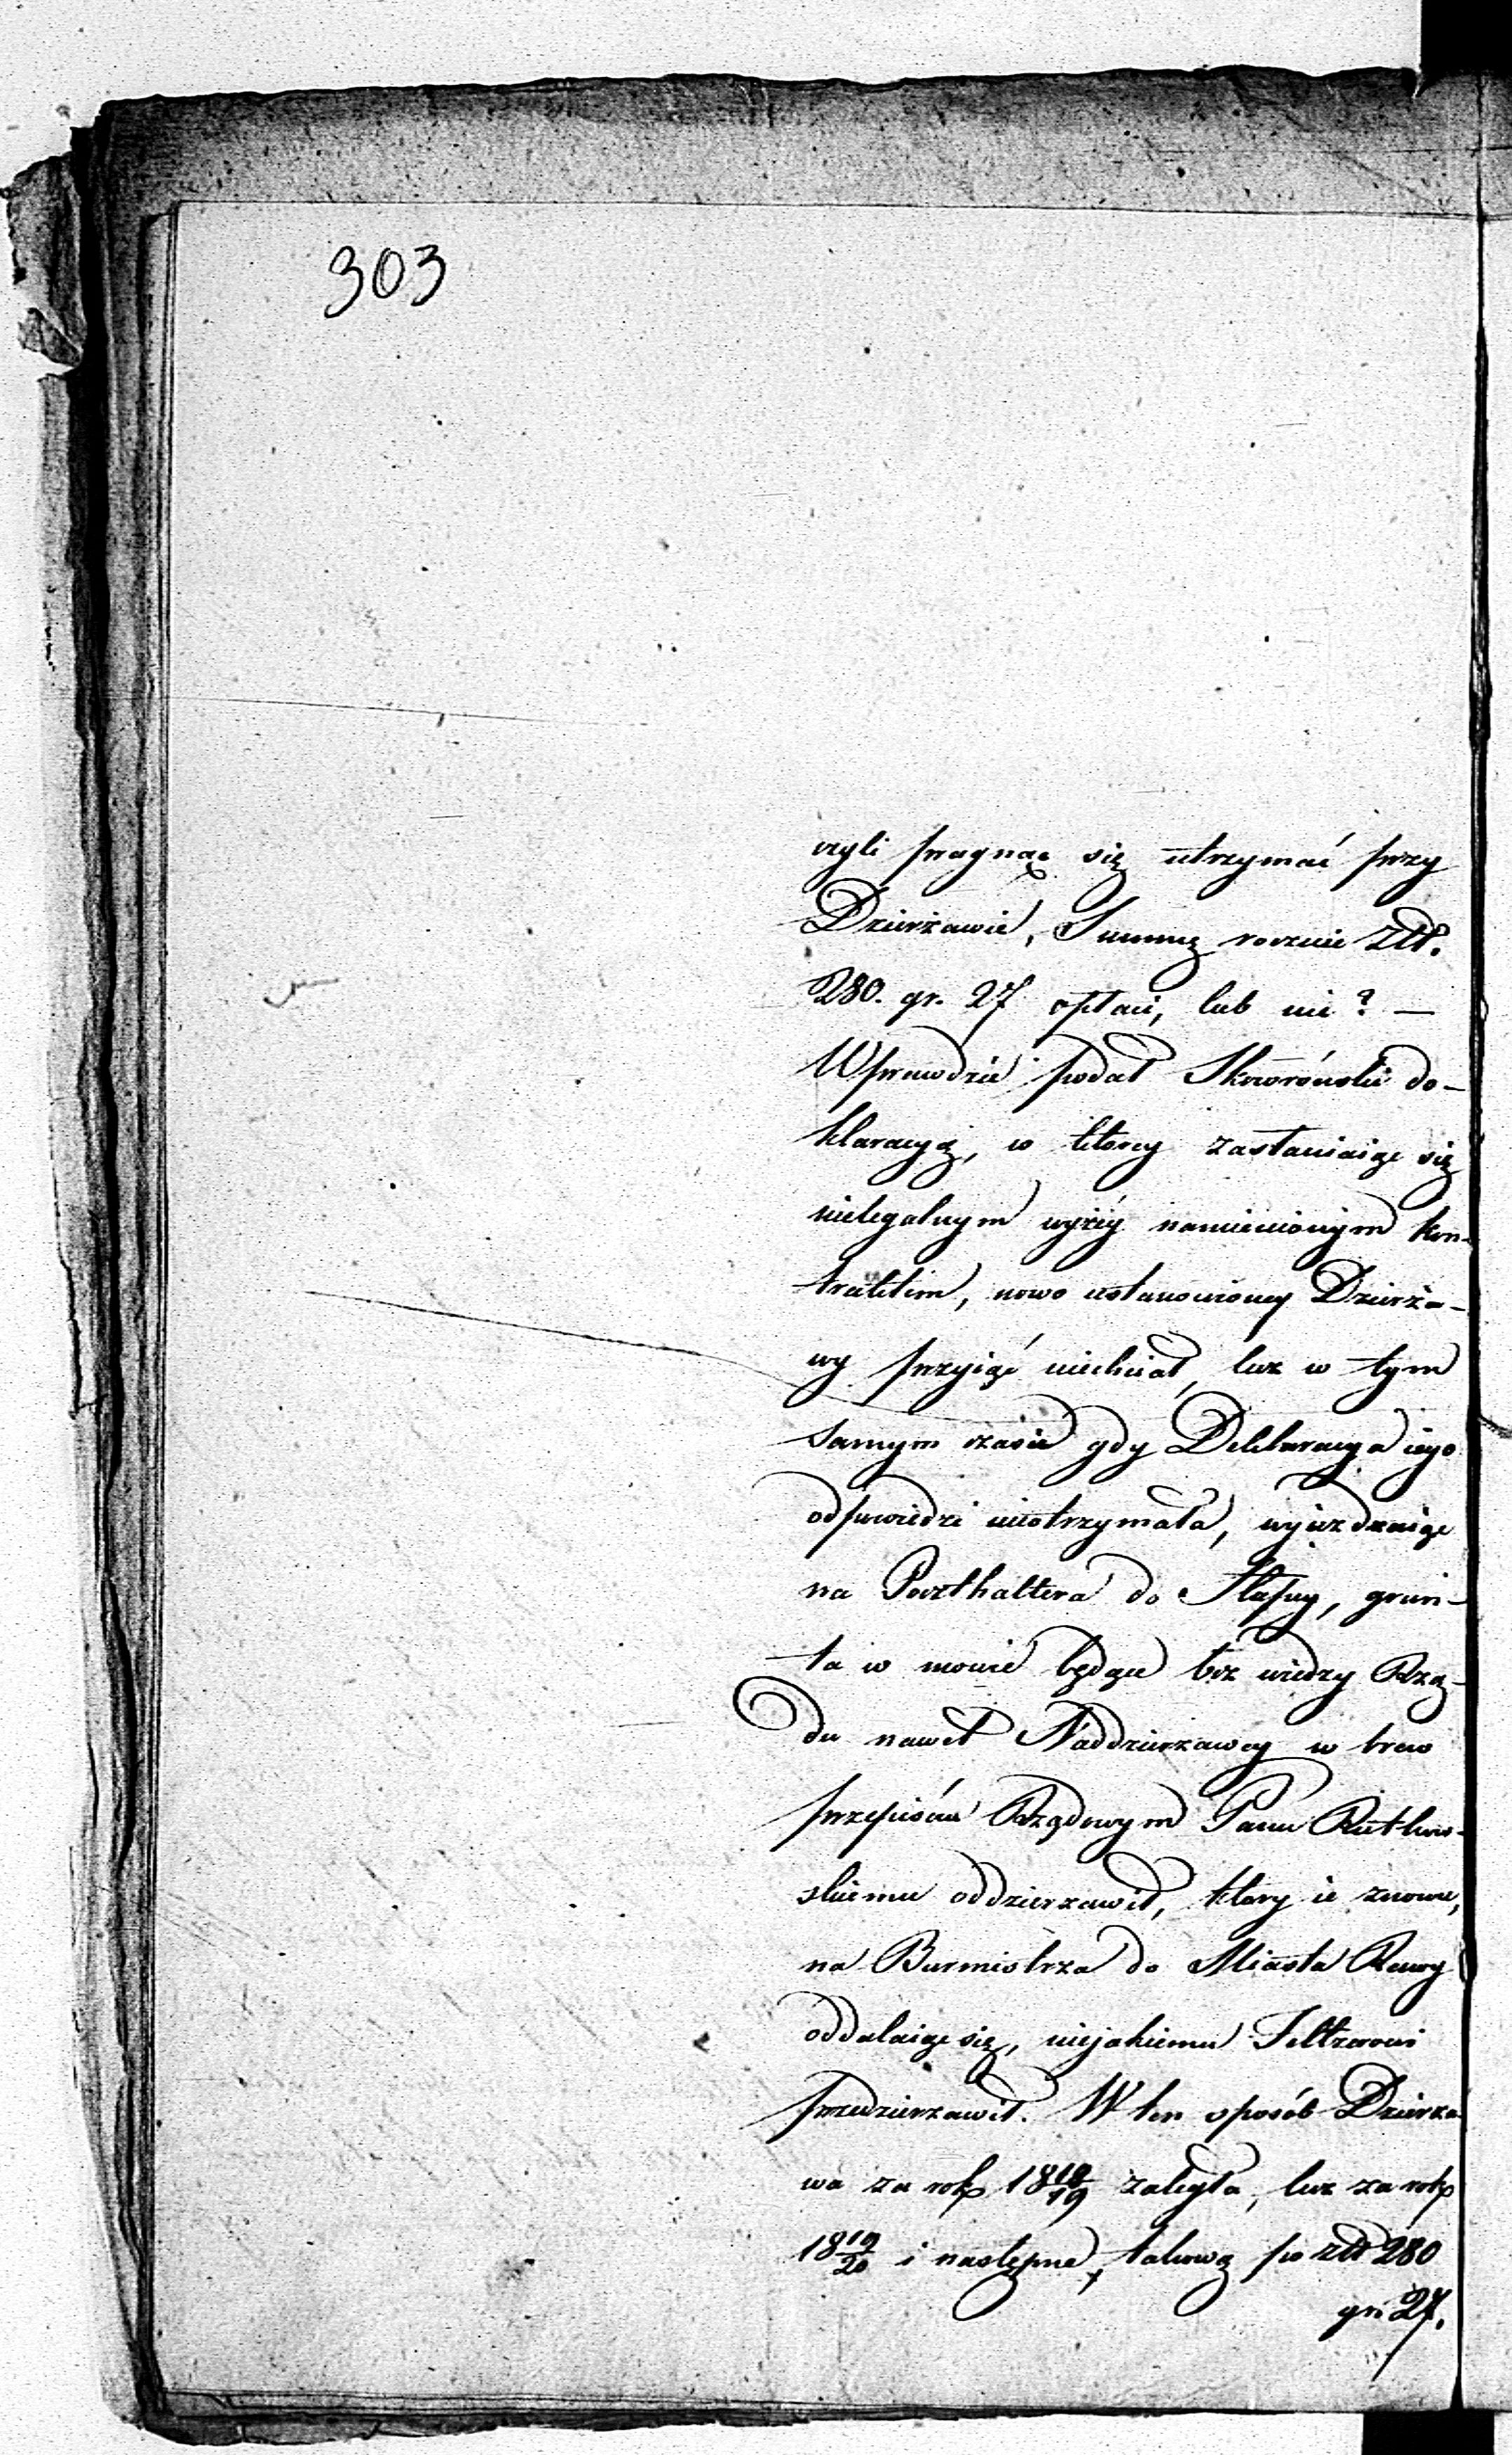 303
czyli pragnąc się utrzymać przy
Dzierżawie, Summę rocznie Złł.
280. gr. 27 opłaci, lub nie? —
Wprawdzie podał Skworóński de-
klaracyą, w ktorey zasłaniaiąc się
nielegalnym wyżéy namienionym kon-
traktem, nowo ustanowioney Dzierża-
wy przyiąć niechciał, lecz w tym
samym czasie gdy Deklaracya iego
odpowiedzi nieotrzymała, wyjezdzaiąc
na Poczthaltera do Słupcy, grun-
ta w mowie będące bez wiedzy Rzą-
du nawet Naddzierzawcy w brew
przepisów Rządowym Panu Rutkow-
skiemu oddzierzawił, ktory ie znowu,
na Burmistrza do Miasta Rawy
oddalaiąc się, niejakiemu Feltzerowi
przedzierzawił. W ten sposób Dzierza
wa za rok 18 18/19 zaległa, lecz za rok
18 19/20 i następne, takową po złł 280
gr. 27.